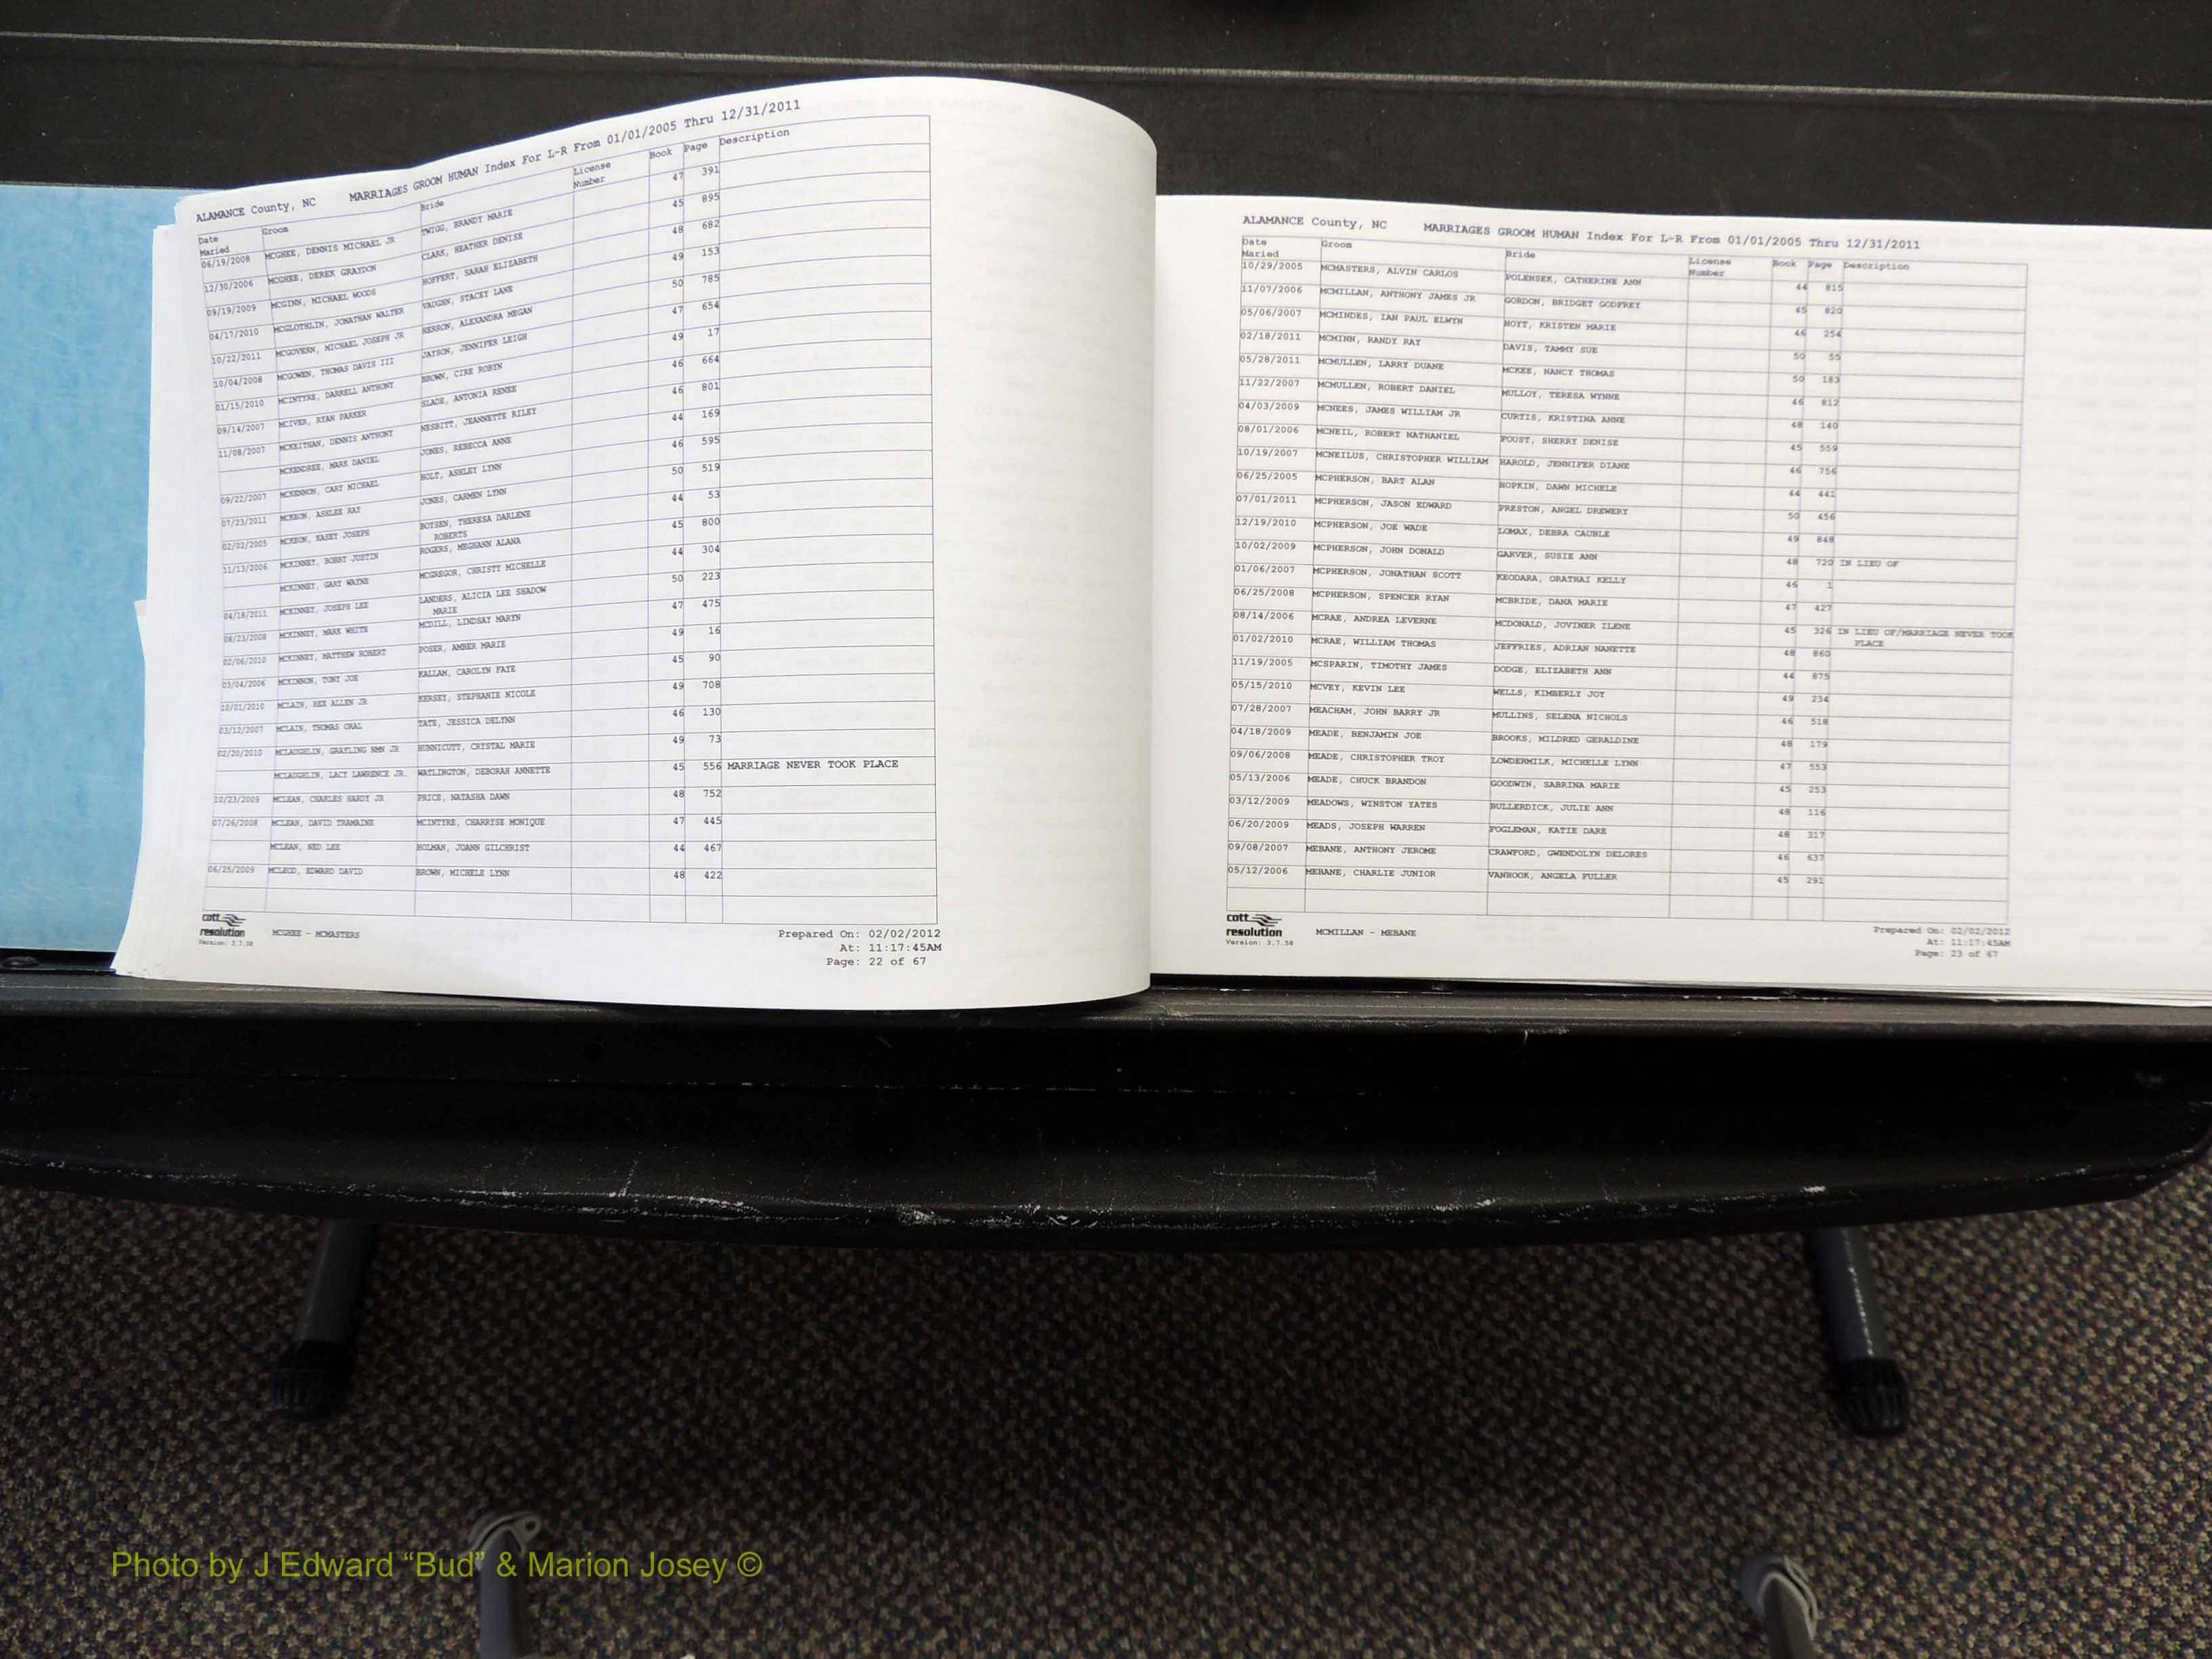 ALAMANCE County, NC MARRIAGES GROOM HUMAN Index For L-R From 01/01/2005 Thru 12/31/2011
Date Maried Groom Bride License Number Book Page Description
06/19/2008 MCGHEE, DENNIS MICHAEL JR TWIGG, BRANDY MARIE 47 391
12/30/2006 MCGHEE, DEREK GRAYDON CLARK, HEATHER DENISE 45 895
09/19/2009 MCGINN, MICHAEL WOODS HOFFERT, SARAH ELIZABETH 48 682
04/17/2010 MCGLOTHLIN, JONATHAN WALTER VAUGHN, STACEY LANE 49 153
10/22/2011 MCGOVERN, MICHAEL JOSEPH JR HERRON, ALEXANDRA MEGAN 50 785
10/04/2008 MCGOWEN, THOMAS DAVIS III JAYSON, JENNIFER LEIGH 47 654
01/15/2010 MCINTYRE, DARRELL ANTHONY BROWN, CIRE ROBYN 49 17
09/14/2007 MCIVER, RYAN PARKER SLADE, ANTONIA RENEE 46 664
11/08/2007 MCKEITHAN, DENNIS ANTHONY NESBITT, JEANNETTE RILEY 46 801
MCKENDREE, MARK DANIEL JONES, REBECCA ANNE 44 169
09/22/2007 MCKENNON, CARY MICHAEL HOLT, ASHLEY LYNN 46 595
07/23/2011 MCKEON, ASHLEE RAY JONES, CARMEN LYNN 50 519
02/02/2005 MCKEON, KASEY JOSEPH BOYSEN, THERESA DARLENE ROBERTS 44 53
11/13/2006 MCKINNEY, BOBBY JUSTIN ROGERS, MEGHANN ALANA 45 800
MCKINNEY, GARY WAYNE MCGREGOR, CHRISTY MICHELLE 44 304
04/18/2011 MCKINNEY, JOSEPH LEE LANDERS, ALICIA LEE SHADOW MARIE 50 223
08/23/2008 MCKINNEY, MARK WHITE MCDILL, LINDSAY MARYN 47 475
02/06/2010 MCKINNEY, MATTHEW ROBERT POSER, AMBER MARIE 49 16
03/04/2006 MCKINNON, TONY JOE KALLAM, CAROLYN FAYE 45 90
10/01/2010 MCLAIN, REX ALLEN JR KERSEY, STEPHANIE NICOLE 49 708
03/12/2007 MCLAIN, THOMAS ORAL TATE, JESSICA DELYNN 46 130
02/20/2010 MCLAUGHLIN, GRAYLING NMN JR HUNNICUTT, CRYSTAL MARIE 49 73
MCLAUGHLIN, LACY LAWRENCE JR WATLINGTON, DEBORAH ANNETTE 45 556 MARRIAGE NEVER TOOK PLACE
10/23/2009 MCLEAN, CHARLES HARDY JR PRICE, NATASHA DAWN 48 752
07/26/2008 MCLEAN, DAVID TRAMAINE MCINTYRE, CHARRYSE MONIQUE 47 445
MCLEAN, NED LEE HOLMAN, JOANN GILCHRIST 44 467
06/25/2009 MCLEOD, EDWARD DAVID BROWN, MICHELE LYNN 48 422
cott
resolution MCGHEE - MCMASTERS Prepared On: 02/02/2012
Version: 3.7.58 At: 11:17:45AM
Page: 22 of 67
ALAMANCE County, NC MARRIAGES GROOM HUMAN Index For L-R From 01/01/2005 Thru 12/31/2011
Date Maried Groom Bride License Number Book Page Description
10/29/2005 MCMASTERS, ALVIN CARLOS POLENSEK, CATHERINE ANN 44 815
11/07/2006 MCMILLAN, ANTHONY JAMES JR GORDON, BRIDGET GODFREY 45 820
05/06/2007 MCMINDES, IAN PAUL ELWYN HOYT, KRISTEN MARIE 46 254
02/18/2011 MCMINN, RANDY RAY DAVIS, TAMMY SUE 50 55
05/28/2011 MCMULLEN, LARRY DUANE MCKEE, NANCY THOMAS 50 183
11/22/2007 MCMULLEN, ROBERT DANIEL MULLOY, TERESA WYNNE 46 812
04/03/2009 MCNEES, JAMES WILLIAM JR CURTIS, KRISTINA ANNE 48 140
08/01/2006 MCNEIL, ROBERT NATHANIEL FOUST, SHERRY DENISE 45 559
10/19/2007 MCNEILUS, CHRISTOPHER WILLIAM HAROLD, JENNIFER DIANE 46 756
06/25/2005 MCPHERSON, BART ALAN HOPKIN, DAWN MICHELE 44 441
07/01/2011 MCPHERSON, JASON EDWARD PRESTON, ANGEL DREWERY 50 456
12/19/2010 MCPHERSON, JOE WADE LOMAX, DEBRA CAUBLE 49 848
10/02/2009 MCPHERSON, JOHN DONALD GARVER, SUSIE ANN 48 720 IN LIEU OF
01/06/2007 MCPHERSON, JONATHAN SCOTT KEODARA, ORATHAI KELLY 46 1
06/25/2008 MCPHERSON, SPENCER RYAN MCBRIDE, DANA MARIE 47 427
08/14/2006 MCRAE, ANDREA LEVERNE MCDONALD, JOVINER ILENE 45 326 IN LIEU OF/MARRIAGE NEVER TOOK PLACE
01/02/2010 MCRAE, WILLIAM THOMAS JEFFRIES, ADRIAN NANETTE 48 860
11/19/2005 MCSPARIN, TIMOTHY JAMES DODGE, ELIZABETH ANN 44 875
05/15/2010 MCVEY, KEVIN LEE WELLS, KIMBERLY JOY 49 234
07/28/2007 MEACHAM, JOHN BARRY JR MULLINS, SELENA NICHOLS 46 518
04/18/2009 MEADE, BENJAMIN JOE BROOKS, MILDRED GERALDINE 48 179
09/06/2008 MEADE, CHRISTOPHER TROY LOWDERMILK, MICHELLE LYNN 47 553
05/13/2006 MEADE, CHUCK BRANDON GOODWIN, SABRINA MARIE 45 253
03/12/2009 MEADOWS, WINSTON YATES BULLERDICK, JULIE ANN 48 116
06/20/2009 MEADS, JOSEPH WARREN FOGLEMAN, KATIE DARE 48 317
09/08/2007 MEBANE, ANTHONY JEROME CRAWFORD, GWENDOLYN DELORES 46 637
05/12/2006 MEBANE, CHARLIE JUNIOR VANHOOK, ANGELA FULLER 45 291
cott
resolution MCMILLAN - MEBANE Prepared On: 02/02/2012
Version: 3.7.58 At: 11:17:45AM
Page: 23 of 67
Photo by J Edward “Bud” & Marion Josey ©